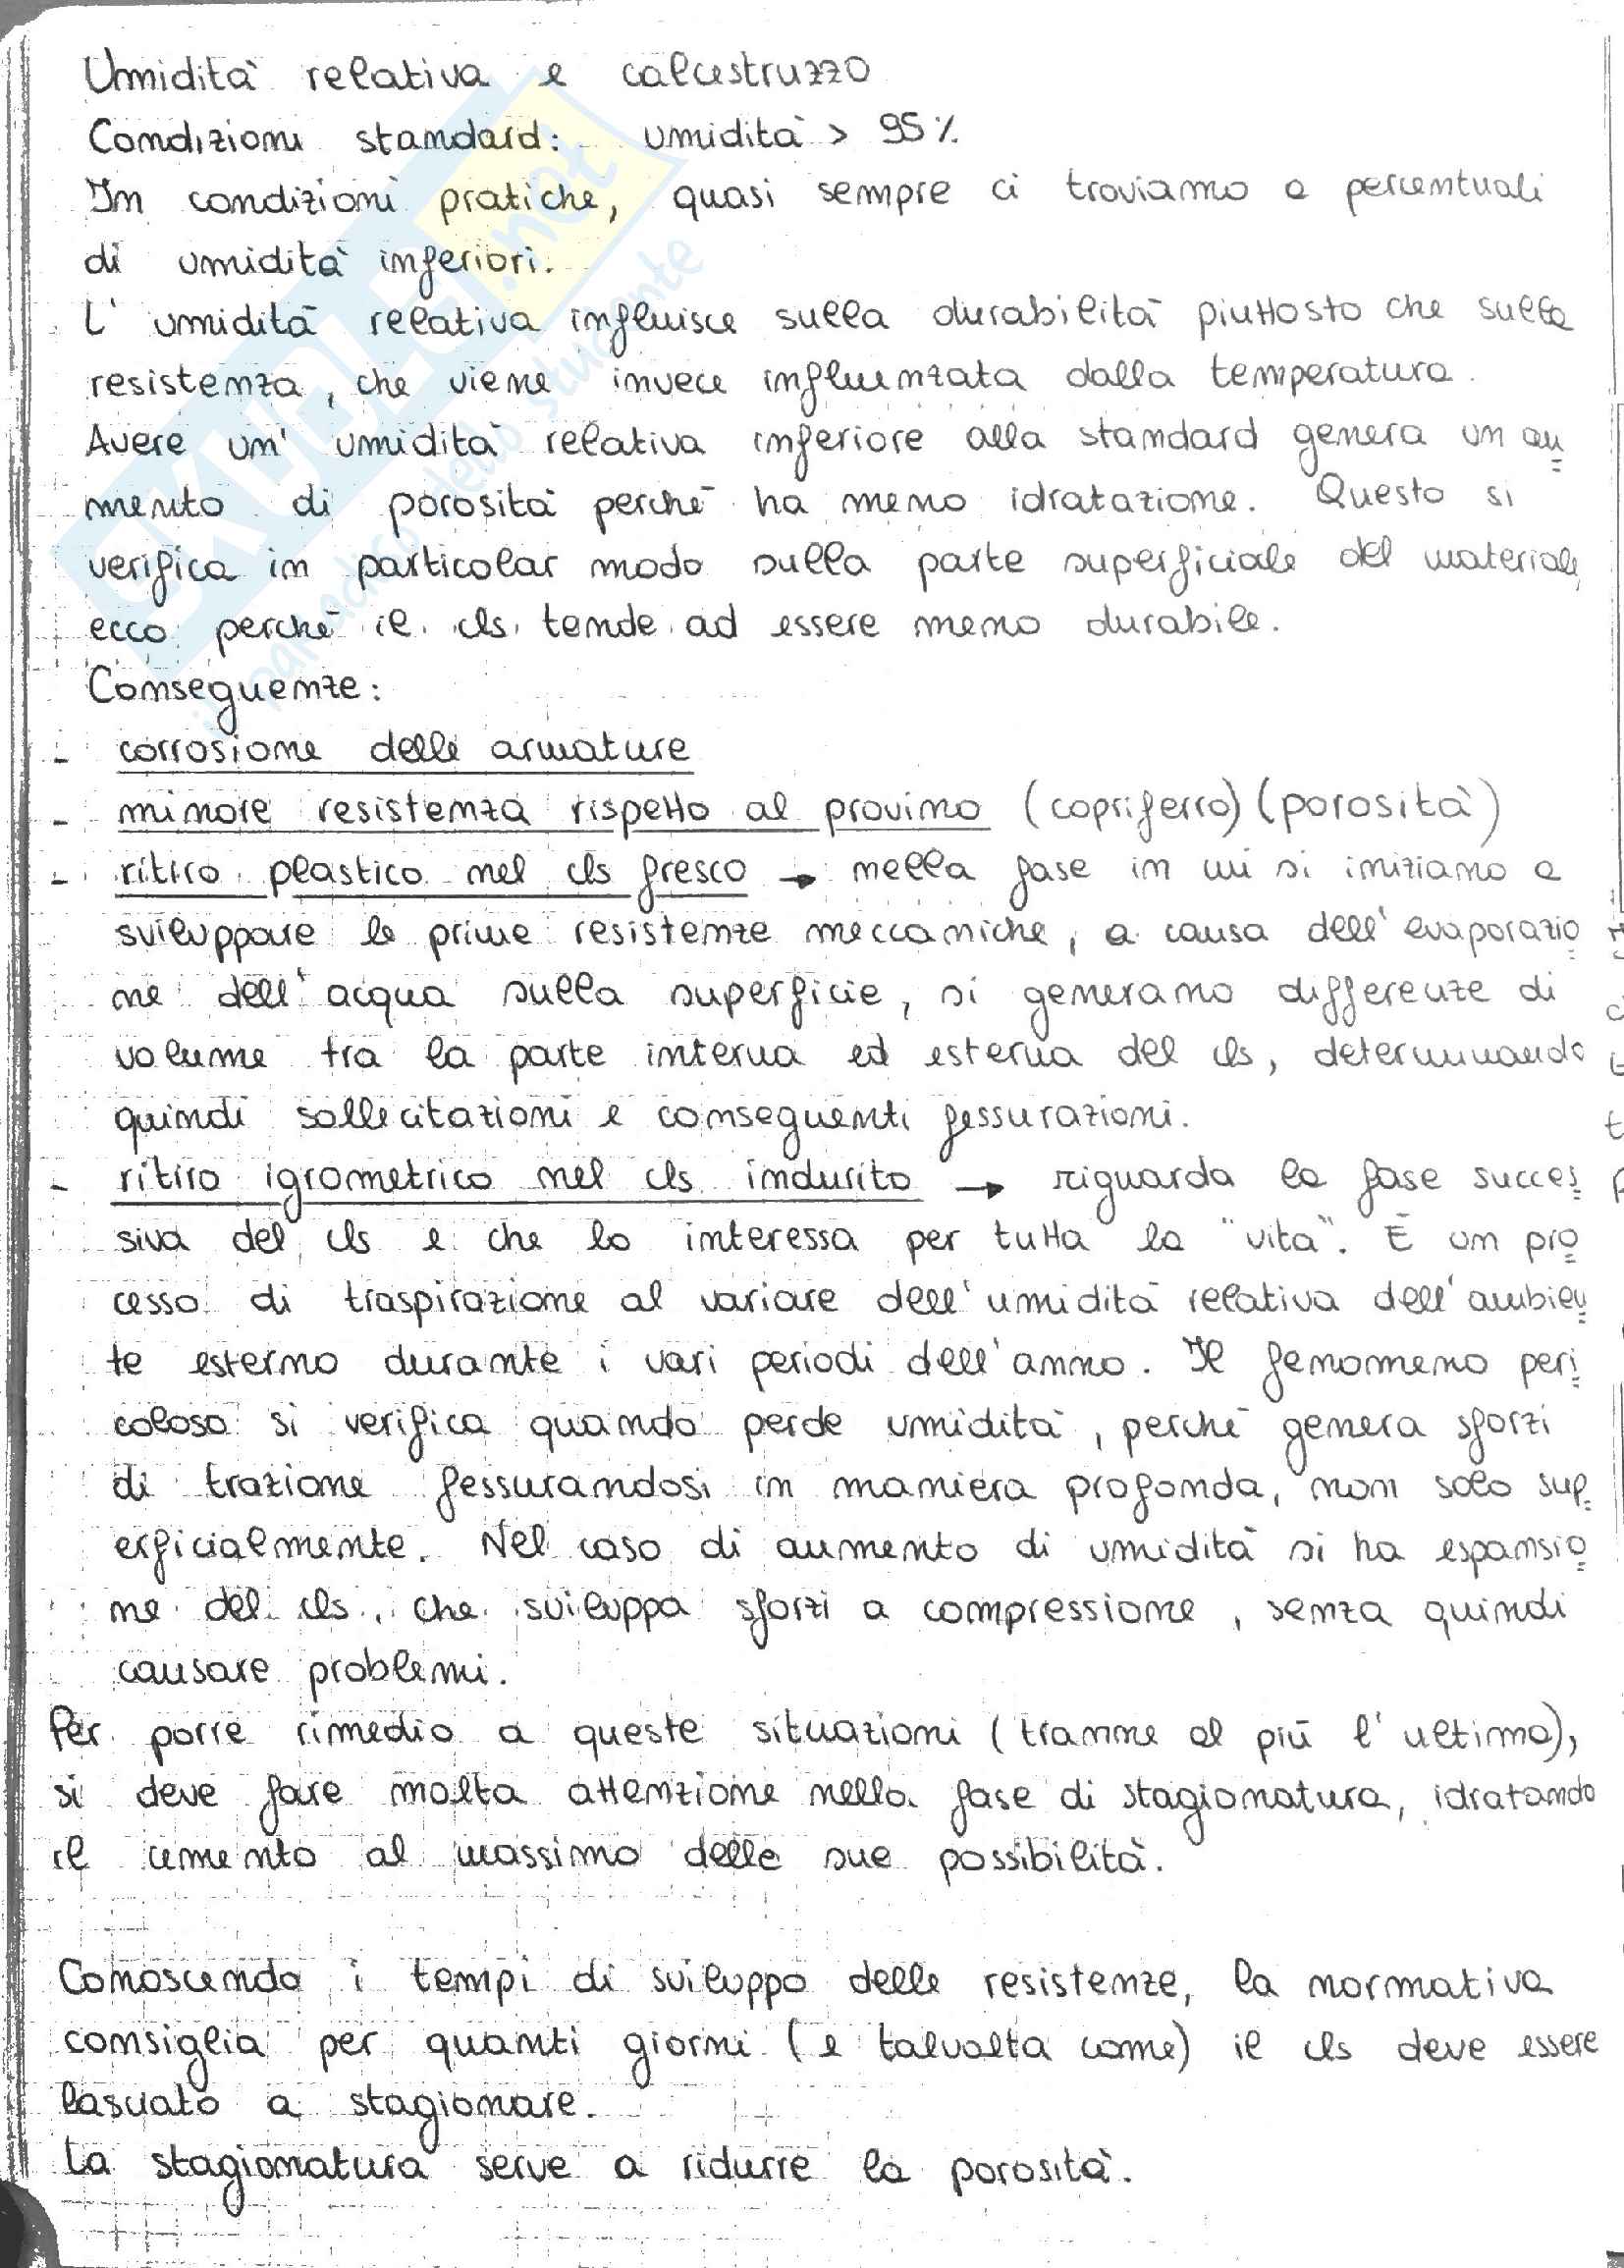 Umidità relativa e calcestruzzo
Condizioni standard: umidità > 95%
In condizioni pratiche, quasi sempre ci troviamo a percentuali
di umidità inferiori.
L'umidità relativa influisce sulla durabilità piuttosto che sulla
resistenza, che viene invece influenzata dalla temperatura.
Avere un'umidità relativa inferiore alla standard genera un au
mento di porosità perché ha meno idratazione. Questo si
verifica in particolar modo sulla parte superficiale del materiale,
ecco perché il cls tende ad essere meno durabile.
Conseguenze:
- corrosione delle armature
- minore resistenza rispetto al provino (copriferro) (porosità)
- ritiro plastico nel cls fresco → nella fase in cui si iniziano a
sviluppare le prime resistenze meccaniche, a causa dell'evaporazio
ne dell'acqua sulla superficie, si generano differenze di
volume tra la parte interna ed esterna del cls, determinando
quindi sollecitazioni e conseguenti fessurazioni.
- ritiro igrometrico nel cls indurito → riguarda la fase succes
siva del cls e che lo interessa per tutta la "vita". È un pro
cesso di traspirazione al variare dell'umidità relativa dell'ambien
te esterno durante i vari periodi dell'anno. Il fenomeno peri
coloso si verifica quando perde umidità, perché genera sforzi
di trazione fessurandosi in maniera profonda, non solo sup
erficialmente. Nel caso di aumento di umidità si ha espansio
ne del cls, che sviluppa sforzi a compressione, senza quindi
causare problemi.
Per porre rimedio a queste situazioni (tranne al più l'ultima),
si deve fare molta attenzione nella fase di stagionatura, idratando
il cemento al massimo delle sue possibilità.
Conoscendo i tempi di sviluppo delle resistenze, la normativa
consiglia per quanti giorni (e talvolta come) il cls deve essere
lasciato a stagionare.
La stagionatura serve a ridurre la porosità.
SKUOLA.net
il paradiso dello studente